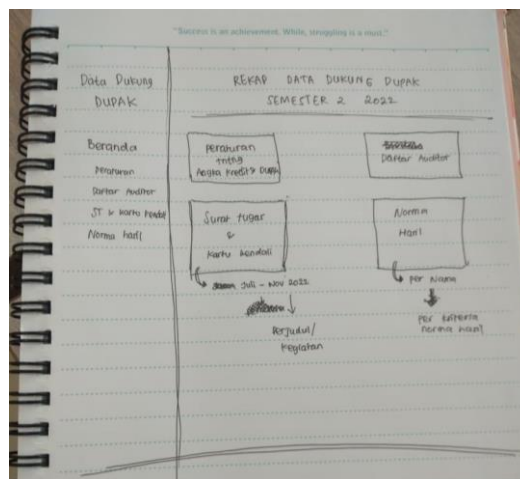 "Success is an achievement. While, struggling is a must."
Data Dukung
DUPAK
Beranda
Peraturan
Daftar Auditor
ST & Kartu Kendali
Norma Hasil
REKAP DATA DUKUNG DUPAK
SEMESTER 2 2022
Peraturan
tntng
Angka Kredit & Dupak
Daftar Auditor
Surat tugas
&
Kartu kendali
Juli - Nov 2022
Perjudul/
Kegiatan
Norma
Hasil
Per Nama
Per kriteria
norma hasil